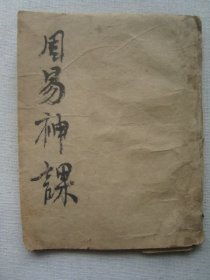 周易神課